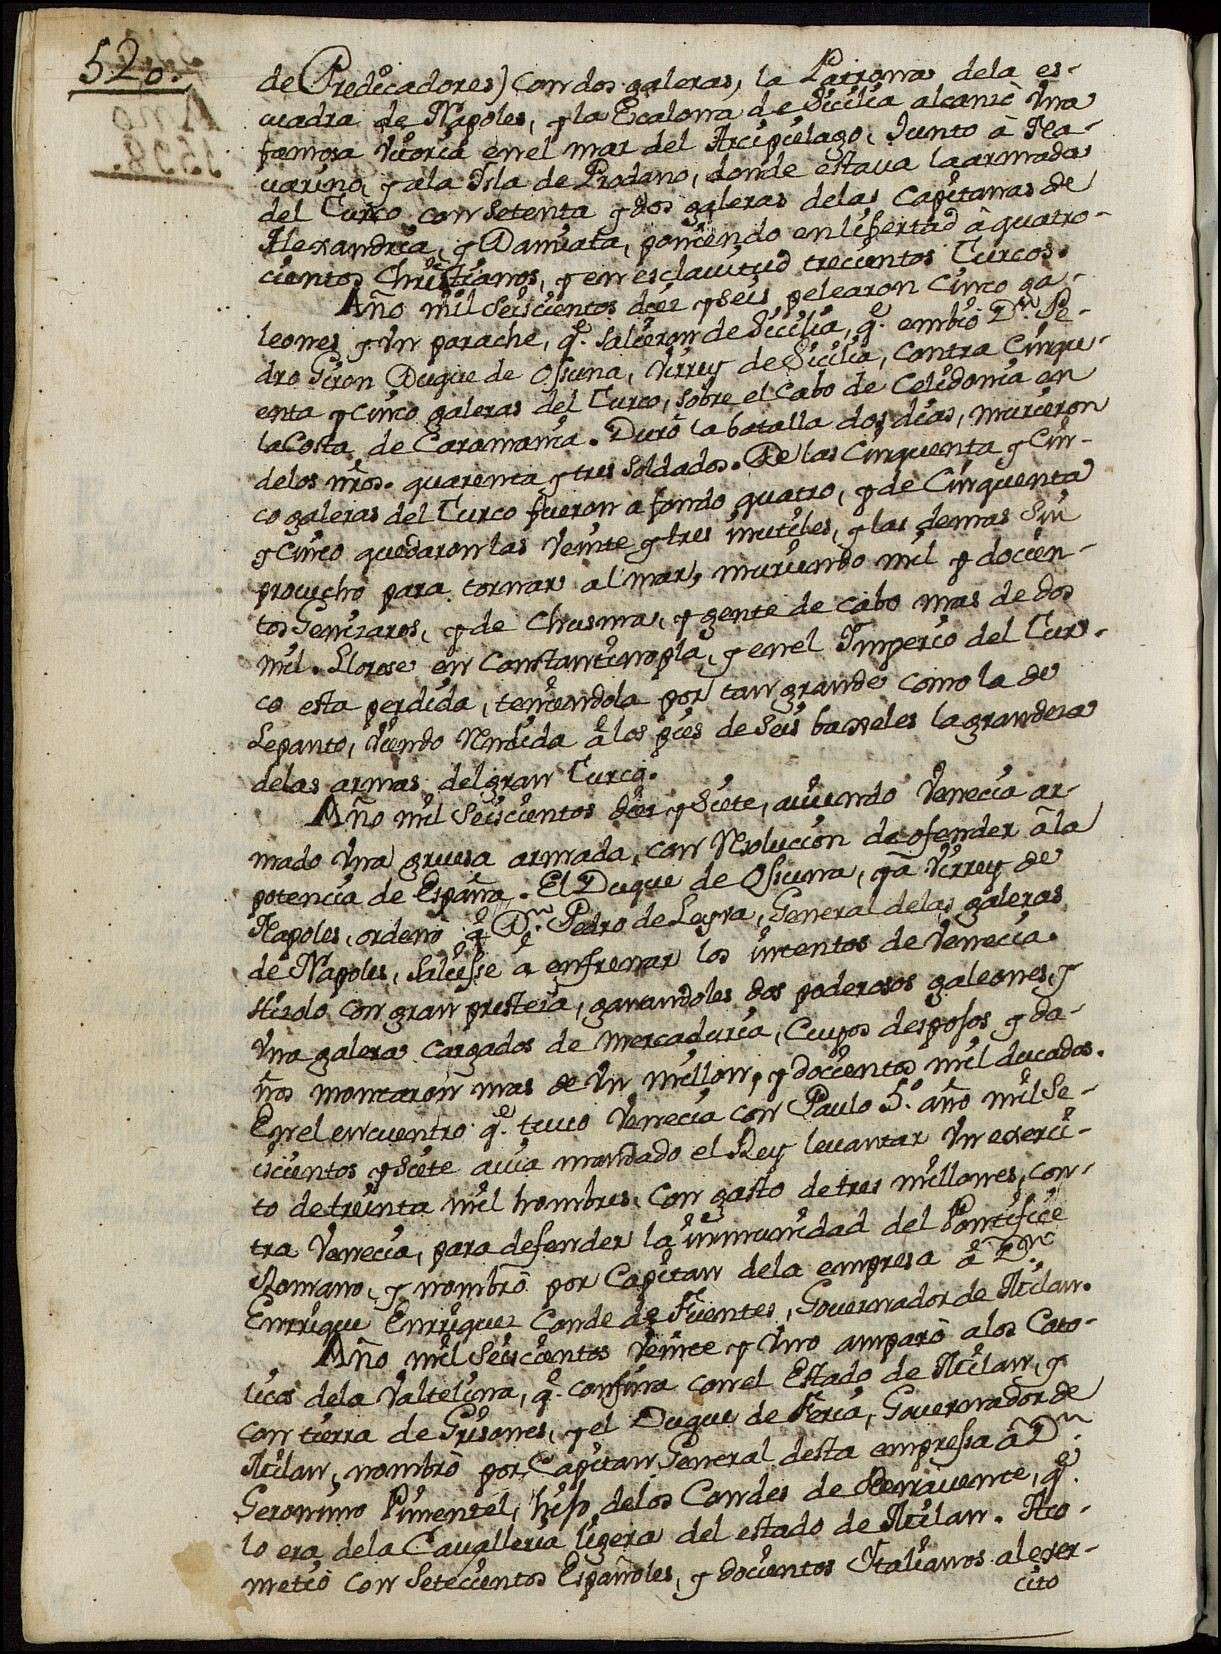 520.
de Predicadores) con dos galeras, la Patrona de la es-
cuadra de Napoles, y la Escalona de Sicilia alcanzò vna
famosa vitoria en el mar del Arcipielago, Junto à Na-
varino, y ala Isla de Prodano, donde estaua la armada
del Turco con setenta y dos galeras delas Capitanas de
Alexandria, y Damiata, poniendo en libertad à quatro-
cientos Christianos, y en esclauitud trecientos Turcos.
Año mil seiscientos diez y seis pelearon cinco ga-
leones y vn patache, q.e salieron de Sicilia, q.e embió D.n Pe-
dro Giron Duque de Ossuna, Virrey de Sicilia, contra cinqu-
enta y cinco galeras del Turco, sobre el Cabo de Celidonia en
la Costa de Caramania. Duró la batalla dos dias, murieron
delos nros. quarenta y tres soldados. De las cinquenta y cin-
co galeras del Turco fueron a fondo quatro, y de cinquenta
y cinco quedaron las veinte y tres inutiles, y las demas sin
prouecho para tornar al mar, muriendo mil y docien-
tos Genizaros, y de chusma, y gente de cabo mas de dos
mil. Llorose en Constantinopla, y en el Imperio del Tur-
co esta perdida, teniendola por tan grande como la de
Lepanto, viendo rendida à los pies de seis baxeles la grandeza
delas armas del gran Turco.
Año mil seiscientos diez y siete, auiendo Venecia ar-
mado vna gruesa armada, con resolucion de ofender à la
potencia de España. El Duque de Ossuna, ya Virrey de
Napoles, ordenó q.e D.n Pedro de Leyva, General delas galeras
de Napoles, saliesse à enfrenar los intentos de Venecia.
Hizolo con gran presteza, ganandoles dos poderosos galeones, y
vna galera cargados de mercaduria, cuyos despojos y da-
ños montaron mas de vn millon, y docientos mil ducados.
En el encuentro q.e tuuo Venecia con Paulo 5.o año mil se-
iscientos y siete auia mandado el Rey leuantar vn exerci-
to de treinta mil hombres, con gasto de tres millones, con-
tra Venecia, para defender la inmunidad del Pontifice
Romano, y nombrò por Capitan dela empresa à D.n
Enrrique Enrriquez Conde de Fuentes, Gouernador de Milan.
Año mil seiscientos veinte y vno amparò a los Cato-
licos dela Valtelina, q.e confina con el Estado de Milan, y
con tierra de Grisones, y el Duque de Feria, Gouernador de
Milan, nombrò por Capitan General desta empressa à D.n
Geronimo Pimentel, hijo delos Condes de Benavente, q.e
lo era dela Cavalleria ligera del estado de Milan. Aco-
metió con setecientos Españoles, y docientos Italianos al exer-
cito